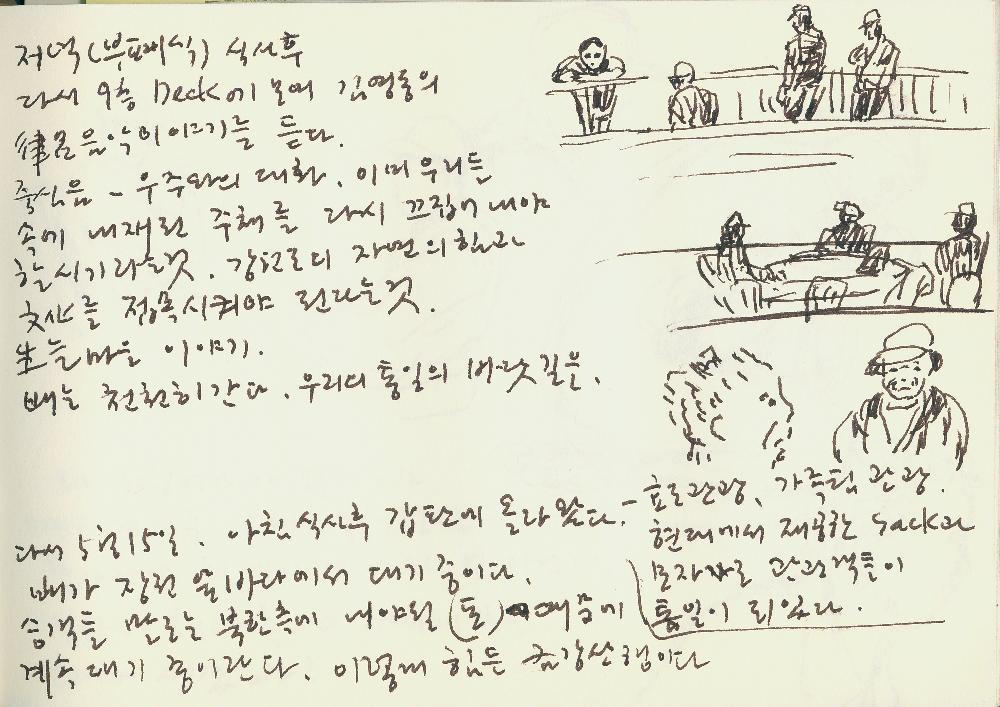 저녁(부페식) 식사후
다시 9층 Deck에 모여 김영동의
律呂음악이야기를 듣다.
중심음 - 우주와의 대화. 이미 우리들
속에 내재된 주체를 다시 끄집어내야
할시기라는것. 강한 자연의힘과
文化를 접목시켜야 된다는것.
生늘마을 이야기.
배는 천천히간다. 우리의 통일의 바닷길은.
다시 5월15일. 아침식사후 갑판에 올라왔다.
배가 장전 앞바다에서 대기중이다.
승객들 말로는 북한측에 내야될 (돈) 때문에
계속 대기 중이란다. 이렇게 힘든 금강산행이다
- 효도관광, 가족팀 관광.
현대에서 제공한 Sack과
모자로 관광객들이
통일이 되었다.